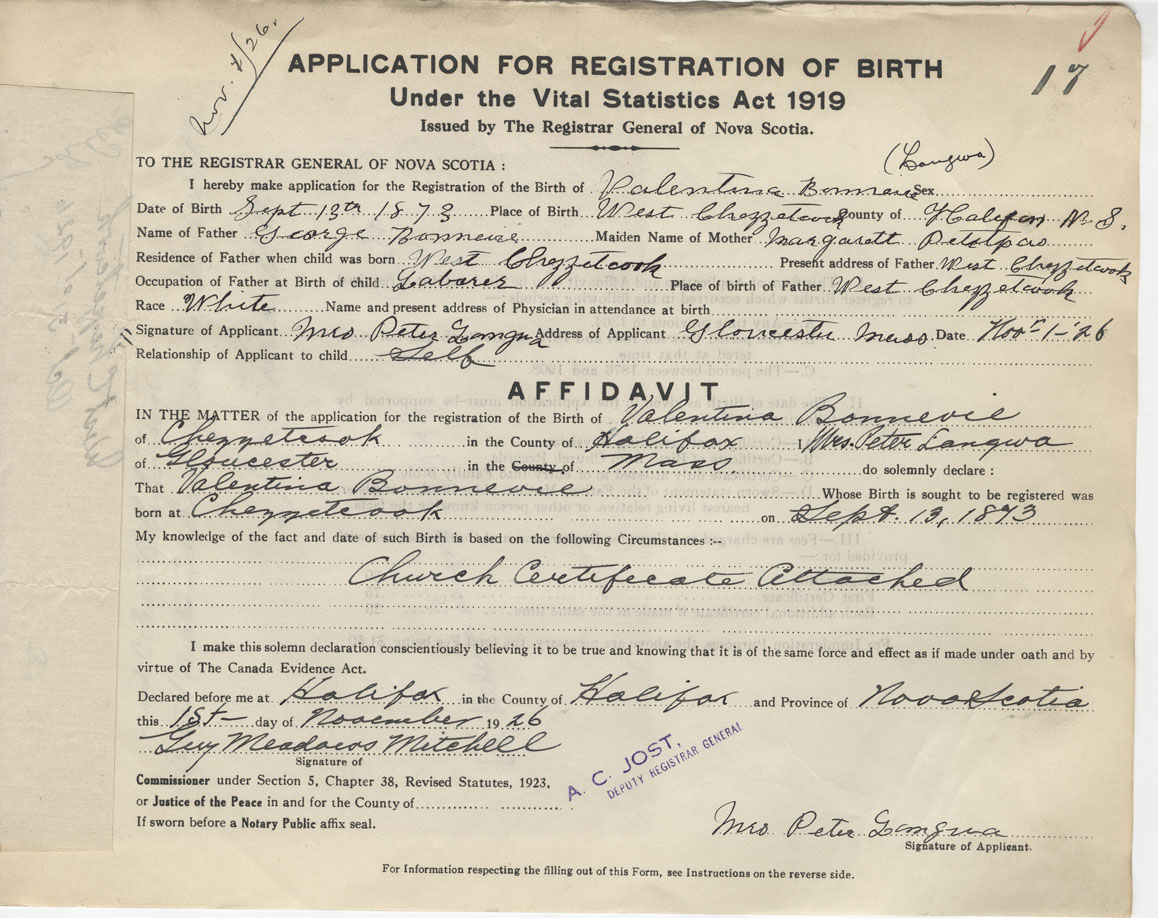 Nov. 4/26.
17
APPLICATION FOR REGISTRATION OF BIRTH
Under the Vital Statistics Act 1919
Issued by The Registrar General of Nova Scotia.
(Langwa)
TO THE REGISTRAR GENERAL OF NOVA SCOTIA :
I hereby make application for the Registration of the Birth of Valentina Bonnevie Sex
Date of Birth Sept 13th 1873 Place of Birth West Chezzetcook County of Halifax N.S.
Name of Father George Bonnevie Maiden Name of Mother Margarett
Residence of Father when child was born West Chezzetcook Present address of Father West Chezzetcook
Occupation of Father at Birth of child Labarer Place of birth of Father West Chezzetcook
Race White Name and present address of Physician in attendance at birth
Signature of Applicant Mrs Peter Langwa Address of Applicant Gloucester Mass Date Nov 1-'26
Relationship of Applicant to child Self
AFFIDAVIT
IN THE MATTER of the application for the registration of the Birth of Valentina Bonnevie
of Chezzetcook in the County of Halifax , Mrs. Peter Langwa
of Gloucester in the County of Mass. do solemnly declare :
That Valentina Bonnevie Whose Birth is sought to be registered was
born at Chezzetcook on Sept. 13, 1873
My knowledge of the fact and date of such Birth is based on the following Circumstances :--
Church Certificate Attached
I make this solemn declaration conscientiously believing it to be true and knowing that it is of the same force and effect as if made under oath and by
virtue of The Canada Evidence Act.
Declared before me at Halifax in the County of Halifax and Province of Nova Scotia
this 1st day of November 1926
Guy Meadows Mitchell
Signature of
A. C. JOST,
DEPUTY REGISTRAR GENERAL
Commissioner under Section 5, Chapter 38, Revised Statutes, 1923,
or Justice of the Peace in and for the County of
If sworn before a Notary Public affix seal.
Mrs Peter Langwa
Signature of Applicant.
For Information respecting the filling out of this Form, see Instructions on the reverse side.